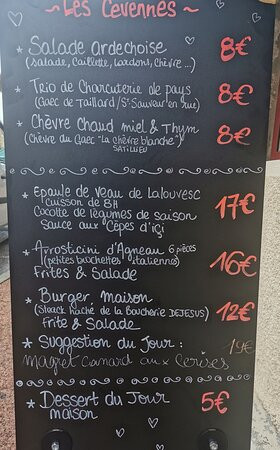 ~ Les Cévennes ~
* Salade ardéchoise 8€
(salade, caillette, lardons, chèvre ...)
* Trio de Charcuterie de pays 8€
(Gaec de Taillard / St-Sauveur en rue)
* Chèvre Chaud miel & Thym 8€
(Chèvre du Gaec "La chèvre blanche")
SATILLIEU
* Epaule de Veau de Lalouvesc 17€
Cuisson de 8H
Cocotte de légumes de saison
Sauce aux Cèpes d'içi
* Arrosticini d'Agneau 6 pièces 16€
(petites brochettes italiennes)
Frites & Salade
* Burger maison 12€
(Steack haché de la Boucherie DEJESUS)
Frite & Salade
* Suggestion du Jour : 19€
Magret Canard aux Cerises
* Dessert du Jour 5€
maison